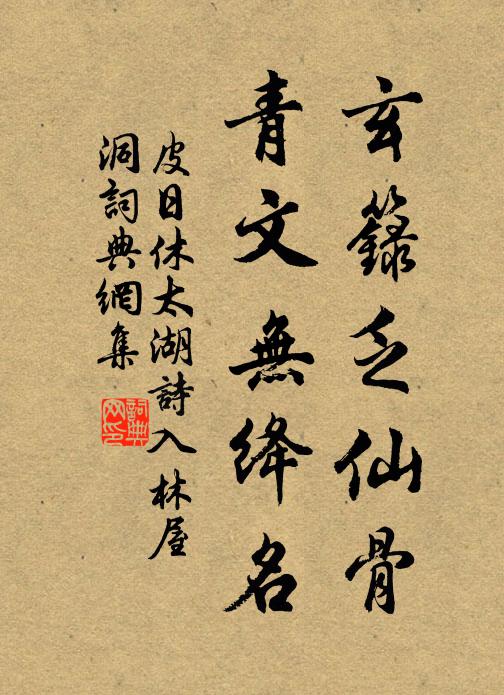 玄籙乏仙骨
青文無绛名
皮日休太湖詩入林屋
洞詞典網集
詞典
网印